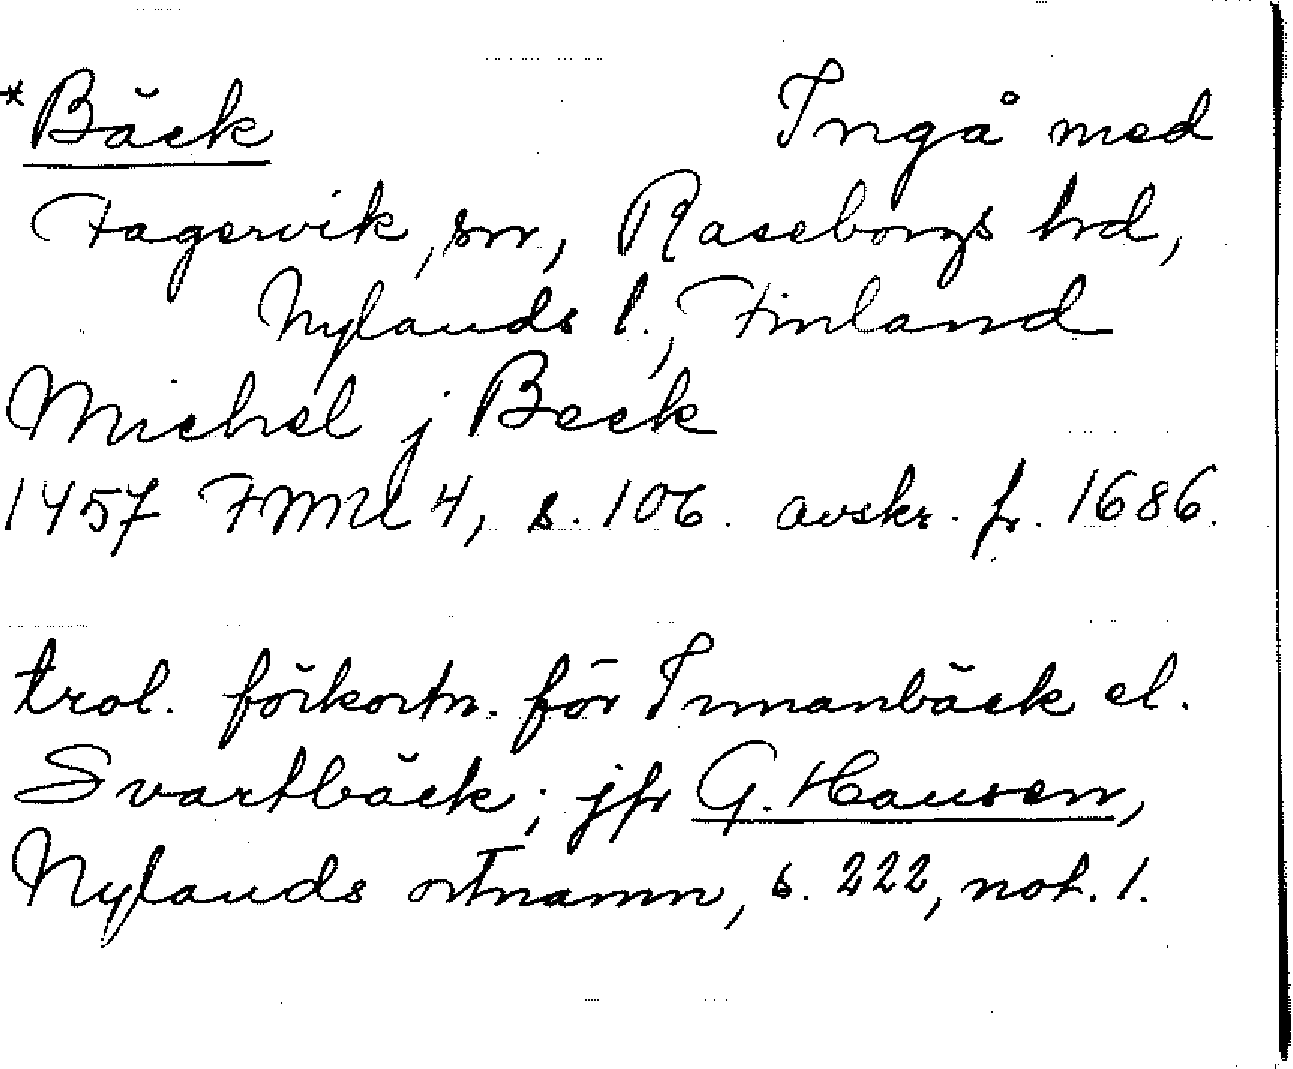 *Bäck Ingå med
Fagervik, sn, Raseborgs hrd,
Nylands l., Finland
Michel j Beck
1457 FMU 4, s. 106. avskr. fr. 1686.
trol. förkortn. för Innanbäck el.
Svartbäck; jfr G. Hausen,
Nylands ortnamn, s. 222, not. 1.